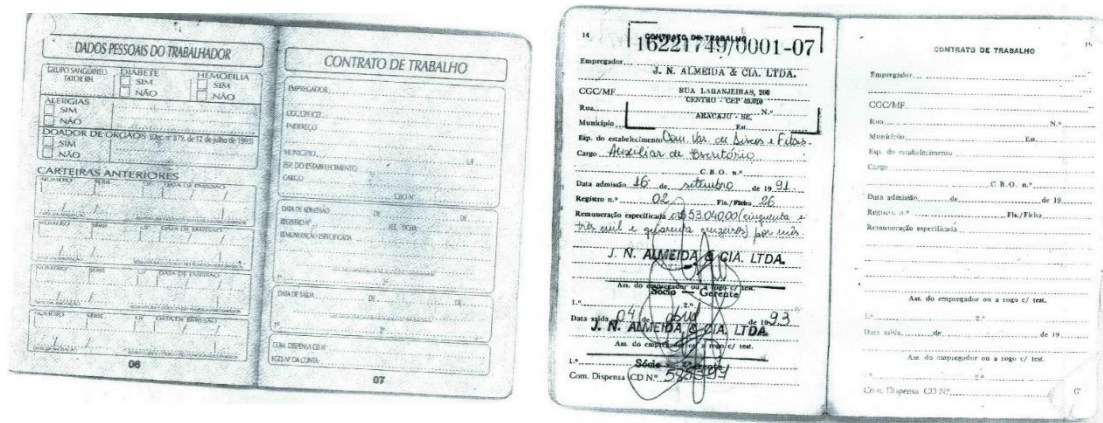 DADOS PESSOAIS DO TRABALHADOR
GRUPO SANGUÍNEO
FATOR RH
DIABETE
SIM
NÃO
HEMOFILIA
SIM
NÃO
ALERGIAS
SIM
NÃO
DOADOR DE ORGÃOS (Dec. nº 879, de 12 de julho de 1993)
SIM
NÃO
CARTEIRAS ANTERIORES
NÚMERO SÉRIE UF DATA DE EMISSÃO
NÚMERO SÉRIE UF DATA DE EMISSÃO
NÚMERO SÉRIE UF DATA DE EMISSÃO
NÚMERO SÉRIE UF DATA DE EMISSÃO
06
CONTRATO DE TRABALHO
EMPREGADOR
CGC/CPF/CEI
ENDEREÇO
MUNICÍPIO UF
ESP. DO ESTABELECIMENTO
CARGO
CBO Nº
DATA DE ADMISSÃO DE DE
REGISTRO Nº FLS./FICHA
REMUNERAÇÃO ESPECIFICADA
1º 2º
DATA DE SAÍDA DE DE
1º 2º
COM. DISPENSA CD Nº
FGTS Nº DA CONTA
07
14
CONTRATO DE TRABALHO
16221749/0001-07
Empregador
J. N. ALMEIDA & CIA. LTDA.
CGC/MF
RUA LARANJEIRAS, 206
Rua N.º
CENTRO - CEP 49.010
Município Est.
ARACAJU - SE.
Esp. do estabelecimento Com. Var. de Discos e Fitas
Cargo Auxiliar de Escritório
C. B. O. n.º
Data admissão 16 de setembro de 19 91
Registro n.º 02 Fls./Ficha 26
Remuneração especificada CR$ 53.040,00 (cinquenta e
três mil e quarenta cruzeiros) por mês.
J. N. ALMEIDA & CIA. LTDA.
Ass. do empregador ou a rogo c/ test.
Sócio - Gerente
1.º 2.º
Data saída 04 de abril de 19 93
J. N. ALMEIDA & CIA. LTDA.
Ass. do empregador ou a rogo c/ test.
1.º Sócio
Com. Dispensa CD N.º
CONTRATO DE TRABALHO
Empregador
CGC/MF
Rua N.º
Município Est.
Esp. do estabelecimento
Cargo
C. B. O. n.º
Data admissão de de 19
Registro n.º Fls./Ficha
Remuneração especificada
Ass. do empregador ou a rogo c/ test.
1.º 2.º
Data saída de de 19
Ass. do empregador ou a rogo c/ test.
1.º 2.º
Com. Dispensa CD Nº